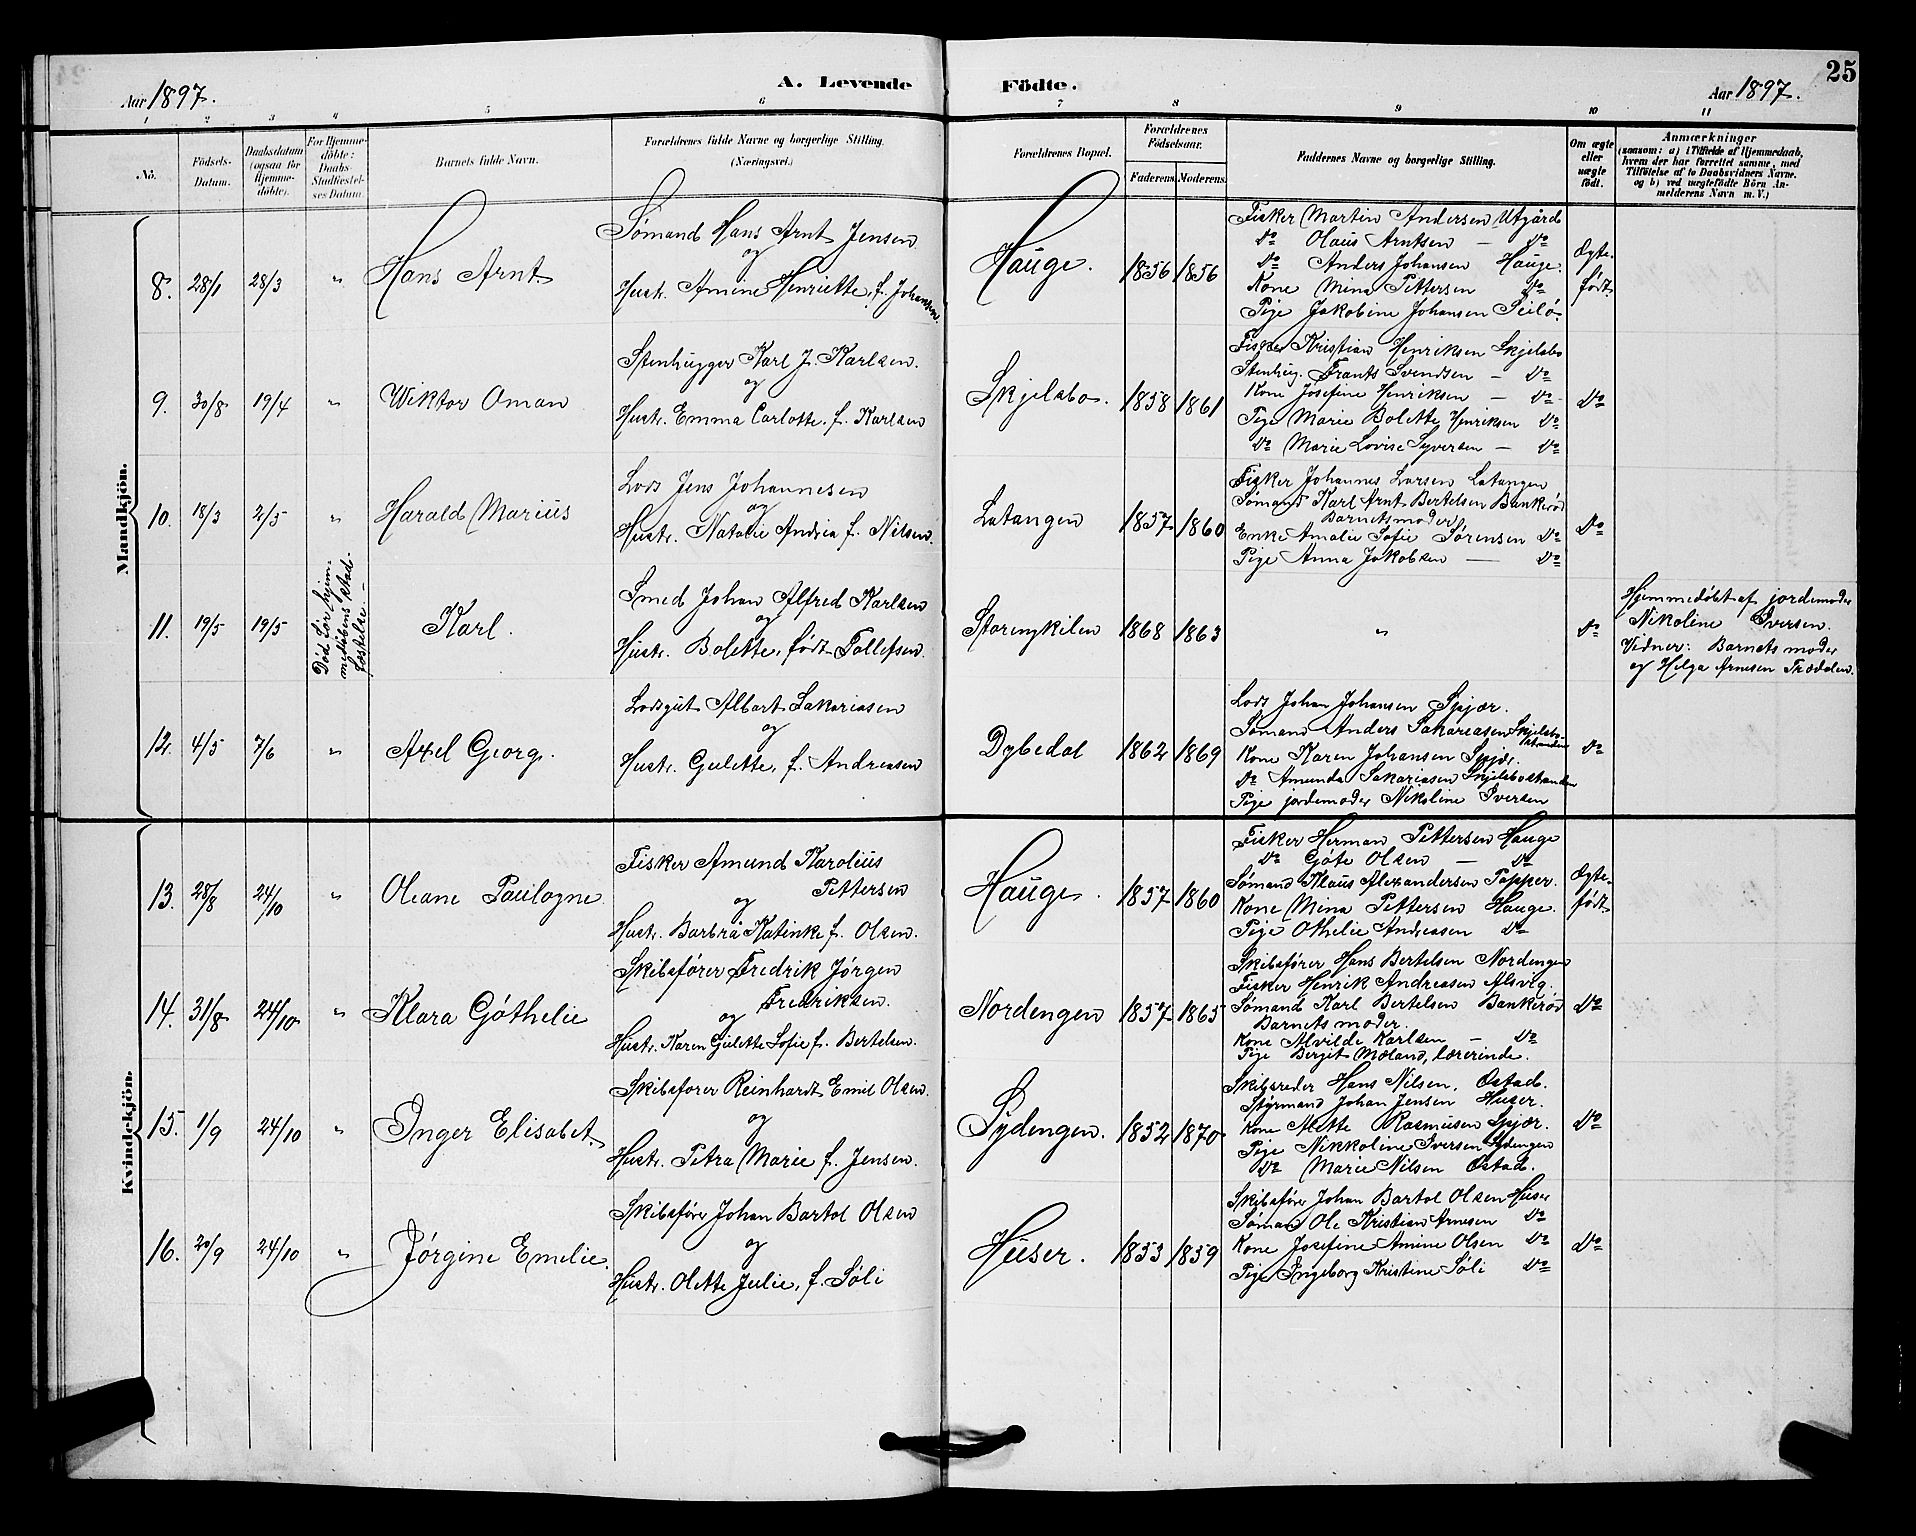 25
Aar 1897.
A. Levende Födte.
Aar 1897.
1 2 3 4 5 6 7 8 9 10 11
No.
Födsels-Datum.
Daabsdatum (ogsaa for Hjemmedöbte).
For Hjemmedöbte: Daabs-Stadfæstelses Datum.
Barnets fulde Navn.
Forældrenes fulde Navne og borgerlige Stilling. (Næringsvei.)
Forældrenes Bopæl.
Forældrenes Födselsaar.
Faderens. Moderens.
Faddernes Navne og borgerlige Stilling.
Om ægte eller uægte födt.
Anmærkninger
(saasom: a) i Tilfælde af Hjemmedaab, hvem der har forrettet samme, med Tilföielse af to Daabsvidners Navne. og b) ved uægtefödte Börn Anmelderens Navn m. V.)
Mandkjön.
8. 28/1 28/3 " Hans Arnt
Sømand Hans Arnt Jensen
og
Hustr. Amine Henriette, f. Johansen.
Hauge. 1856 1856
Fisker Martin Andersen Utgård
Do Olaus Arntsen — Do
Do Anders Johansen Hauge.
Kone Mina Pettersen Do
Pige Jakobine Johansen Seilø
Ægtefødt.
9. 30/8 19/4 " Wiktor Oman
Stenhugger Karl J. Karlsen.
og
Hustr. Emma Carlotte. f. Karlsen
Skjelsbo. 1858 1861
Fisker Kristian Henriksen Skjelsbo
Stenhug. Frants Svendsen — Do
Kone Josefine Henriksen — Do
Pige Marie Bolette Henriksen Do
Do Marie Lovise Syversen — Do
Do
10. 18/3 2/5 " Harald Marius
Lods Jens Johannesen
og
Hustr. Natalie Andrea f. Nilsen.
Latangen 1857 1860
Fisker Johannes Larsen Latangen
Sømand Karl Arnt Bertelsen Bankerød
Barnets moder
Enke Amalie Sofie Sørensen Do
Pige Anna Jakobsen — Do
Do
11. 19/5 19/5
Død før hjemmedåbens stadfæstelse.—
Karl.
Smed Johan Alfred Karlsen
og
Hustr. Bolette, født Tollefsen.
Storenykilen 1868 1863
"
Do
Hjemmedøbt af jordemoder
Nikoline Iversen.
Vidner: Barnets moder
og Helga Arnesen Trædalen.
12. 4/5 7/6 " Axel Georg.
Lodsgut Albart Sakariasen
og
Hustr. Gulette, f. Andreasen
Dybedal 1862 1869
Lods Johan Johansen Spjær.
Sømand Anders Sakariasen Skjelsbostranden
Kone Karen Johansen Spjær.
Do Amunda Sakariasen Skjelsbostranden
Pige jordemoder Nikoline Iversen
Do
Kvindekjön.
13. 28/8 24/10 " Oleane Paulogne
Fisker Amund Karolius
Pettersen
og
Hustr. Barbra Katinke f. Olsen.
Hauge. 1857 1860
Fisker Herman Pettersen Hauge
Do Gøte Olsen — Do
Sømand Klaus Alexandersen Papper.
Kone Mina Pettersen Hauge.
Pige Othelie Andreasen Do
Ægtefødt.
14. 31/8 24/10 " Klara Gøthelie
Skibsfører Fredrik Jørgen
Fredriksen.
og
Hustr. Karen Gulette Sofie f. Bertelsen.
Nordengen 1857 1865
Skibsfører Hans Bertelsen Nordengen
Fisker Henrik Andreasen Alsvig.
Sømand Karl Bertelsen Bankerød
Barnets moder.
Kone Alvilde Karlsen — Do
Pige Bergit Mæland, lærerinde.
Do
15. 1/9 24/10 " Inger Elisabet
Skibsfører Reinhardt Emil Olsen.
og
Hustr. Petra Marie f. Jensen.
Sydengen. 1852 1870
Skibsreder Hans Nilsen, Østad.
Styrmand Johan Jensen Huser.
Kone Mette Rasmusen Spjær.
Pige Nikkoline Iversen Sydengen
Do Marie Nilsen Østad.
Do
16. 20/9 24/10 " Jørgine Emelie.
Skibsfører Johan Bartol Olsen
og
Hustr. Olette Julie, f. Søli
Huser. 1853 1859
Skibsfører Johan Bartol Olsen Huser
Sømand Ole Kristian Arnesen Do
Kone Josefine Amine Olsen Do
Pige Ingeborg Kristine Søli Do
Do